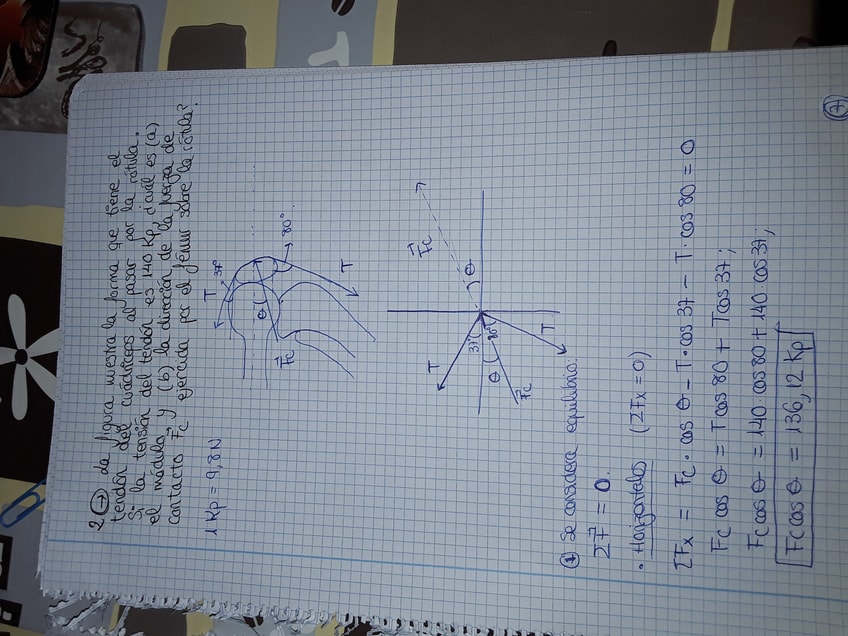 2 → La figura muestra la forma que tiene el
tendón del cuádriceps al pasar por la rótula.
Si la tensión del tendón es 140 Kp, ¿cuál es (a)
el módulo, y (b) la dirección de la fuerza de
contacto F⃗c ejercida por el fémur sobre la rótula?
1 Kp = 9,8 N
T
37°
θ
80°
F⃗c
T
F⃗c
θ
T
37°
θ
80°
F⃗c
T
① Se considera equilibrio:
ΣF⃗ = 0.
· Horizontales (ΣFx = 0)
ΣFx = Fc · cos θ - T · cos 37 - T · cos 80 = 0
Fc cos θ = T cos 80 + T cos 37 ;
Fc cos θ = 140 · cos 80 + 140 cos 37 ;
Fc cos θ = 136,12 Kp
7